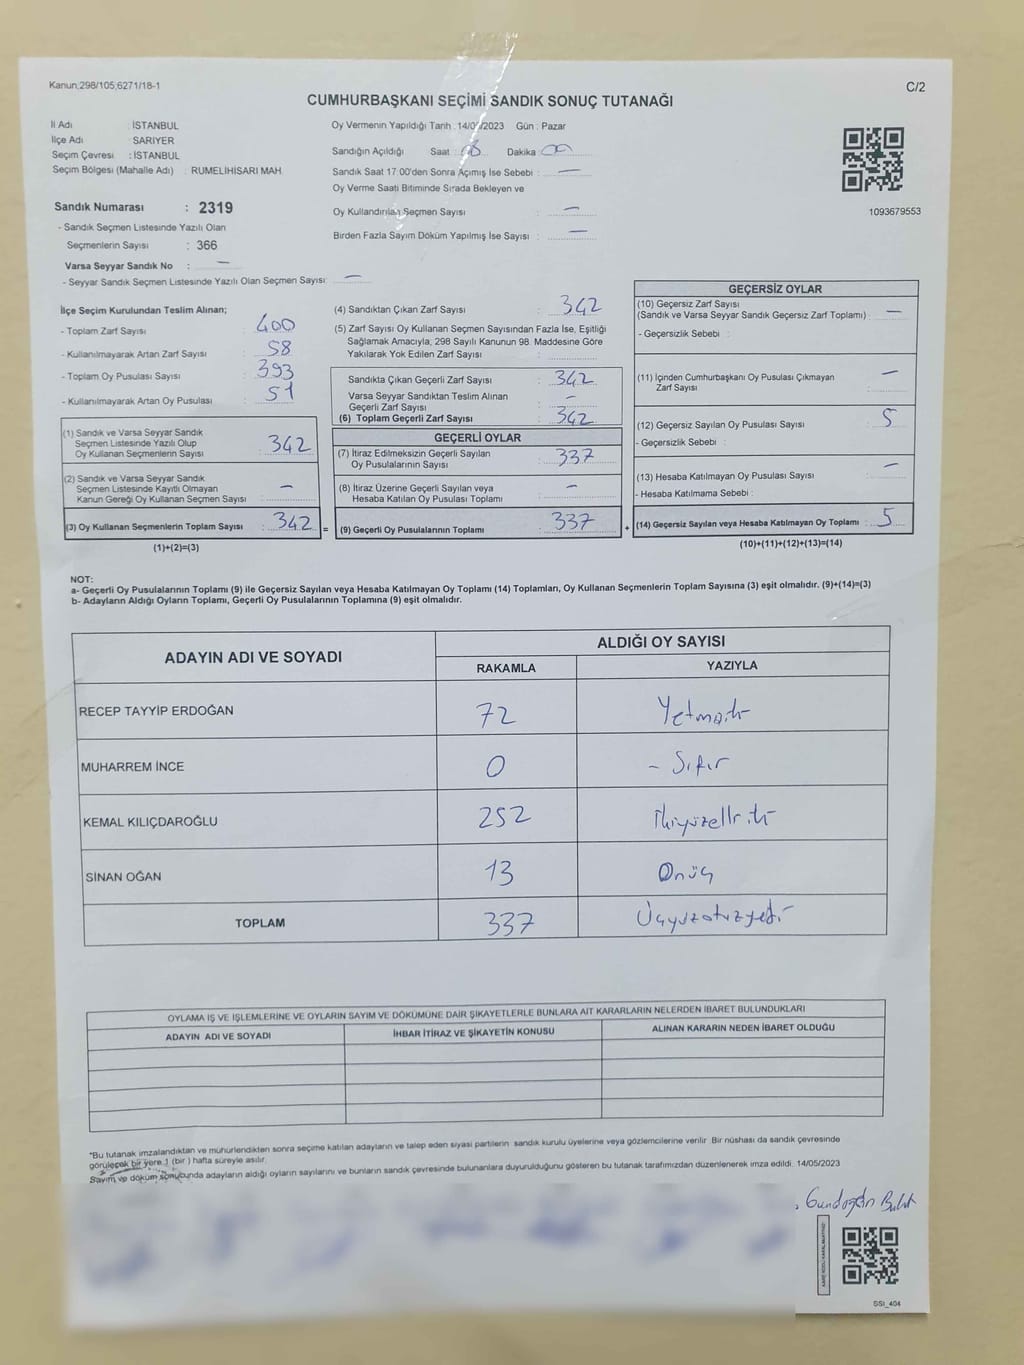 Kanun;298/105;6271/18-1
C/2
CUMHURBAŞKANI SEÇİMİ SANDIK SONUÇ TUTANAĞI
İl Adı : İSTANBUL
İlçe Adı : SARIYER
Seçim Çevresi : İSTANBUL
Seçim Bölgesi (Mahalle Adı) : RUMELİHİSARI MAH.
Sandık Numarası : 2319
- Sandık Seçmen Listesinde Yazılı Olan
Seçmenlerin Sayısı : 366
Varsa Seyyar Sandık No : —
- Seyyar Sandık Seçmen Listesinde Yazılı Olan Seçmen Sayısı: —
Oy Vermenin Yapıldığı Tarih : 14/05/2023 Gün : Pazar
Sandığın Açıldığı Saat : Dakika : 00
Sandık Saat 17.00'den Sonra Açımış İse Sebebi : —
Oy Verme Saati Bitiminde Sırada Bekleyen ve
Oy Kullandırılan Seçmen Sayısı : —
Birden Fazla Sayım Döküm Yapılmış İse Sayısı : —
1093679553
İlçe Seçim Kurulundan Teslim Alınan;
- Toplam Zarf Sayısı : 400
- Kullanılmayarak Artan Zarf Sayısı : 58
- Toplam Oy Pusulası Sayısı : 393
- Kullanılmayarak Artan Oy Pusulası : 51
(1) Sandık ve Varsa Seyyar Sandık
Seçmen Listesinde Yazılı Olup
Oy Kullanan Seçmenlerin Sayısı : 342
(2) Sandık ve Varsa Seyyar Sandık
Seçmen Listesinde Kayıtlı Olmayan
Kanun Gereği Oy Kullanan Seçmen Sayısı : —
(3) Oy Kullanan Seçmenlerin Toplam Sayısı : 342 =
(1)+(2)=(3)
(4) Sandıktan Çıkan Zarf Sayısı : 342
(5) Zarf Sayısı Oy Kullanan Seçmen Sayısından Fazla İse, Eşitliği
Sağlamak Amacıyla; 298 Sayılı Kanunun 98. Maddesine Göre
Yakılarak Yok Edilen Zarf Sayısı :
Sandıkta Çıkan Geçerli Zarf Sayısı : 342
Varsa Seyyar Sandıktan Teslim Alınan
Geçerli Zarf Sayısı : —
(6) Toplam Geçerli Zarf Sayısı : 342
GEÇERLİ OYLAR
(7) İtiraz Edilmeksizin Geçerli Sayılan
Oy Pusulalarının Sayısı : 337
(8) İtiraz Üzerine Geçerli Sayılan veya
Hesaba Katılan Oy Pusulası Toplamı : —
(9) Geçerli Oy Pusulalarının Toplamı : 337 +
GEÇERSİZ OYLAR
(10) Geçersiz Zarf Sayısı
(Sandık ve Varsa Seyyar Sandık Geçersiz Zarf Toplamı) : —
- Geçersizlik Sebebi :
(11) İçinden Cumhurbaşkanı Oy Pusulası Çıkmayan
Zarf Sayısı : —
(12) Geçersiz Sayılan Oy Pusulası Sayısı : 5
- Geçersizlik Sebebi :
(13) Hesaba Katılmayan Oy Pusulası Sayısı : —
- Hesaba Katılmama Sebebi :
(14) Geçersiz Sayılan veya Hesaba Katılmayan Oy Toplamı : 5
(10)+(11)+(12)+(13)=(14)
NOT:
a- Geçerli Oy Pusulalarının Toplamı (9) ile Geçersiz Sayılan veya Hesaba Katılmayan Oy Toplamı (14) Toplamları, Oy Kullanan Seçmenlerin Toplam Sayısına (3) eşit olmalıdır. (9)+(14)=(3)
b- Adayların Aldığı Oyların Toplamı, Geçerli Oy Pusulalarının Toplamına (9) eşit olmalıdır.
ADAYIN ADI VE SOYADI ALDIĞI OY SAYISI
RAKAMLA YAZIYLA
RECEP TAYYİP ERDOĞAN 72 Yetmişiki
MUHARREM İNCE 0 - Sıfır
KEMAL KILIÇDAROĞLU 252 İkiyüzelliiki
SİNAN OĞAN 13 Onüç
TOPLAM 337 Üçyüzotuzyedi
OYLAMA İŞ VE İŞLEMLERİNE VE OYLARIN SAYIM VE DÖKÜMÜNE DAİR ŞİKAYETLERLE BUNLARA AİT KARARLARIN NELERDEN İBARET BULUNDUKLARI
ADAYIN ADI VE SOYADI İHBAR İTİRAZ VE ŞİKAYETİN KONUSU ALINAN KARARIN NEDEN İBARET OLDUĞU
*Bu tutanak imzalandıktan ve mühürlendikten sonra seçime katılan adayların ve talep eden siyasi partilerin sandık kurulu üyelerine veya gözlemcilerine verilir. Bir nüshası da sandık çevresinde
görülecek bir yere 1 (bir ) hafta süreyle asılır.
Sayım ve döküm sonucunda adayların aldığı oyların sayılarını ve bunların sandık çevresinde bulunanlara duyurulduğunu gösteren bu tutanak tarafımızdan düzenlenerek imza edildi. 14/05/2023
Gündoğdn Bulut
SSI_404